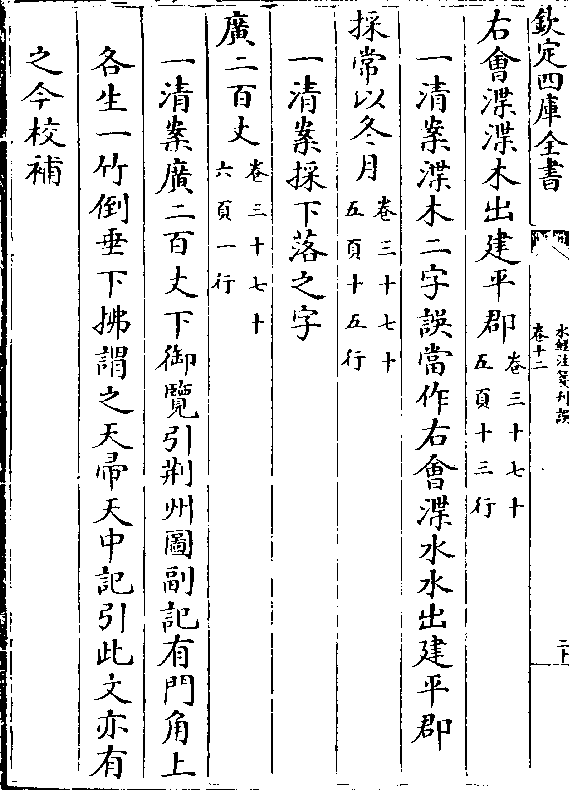 欽定四庫全書
水經注箋刊誤
卷十二
右會渫渫木出建平郡卷三十七十五頁十三行
一清案渫木二字誤當作右會渫水水出建平郡
採常以冬月卷三十七十五頁十五行
一清案採下落之字
廣二百丈卷三十七十六頁一行
一清案廣二百丈下御覽引荆州圖副記有門角上
各生一竹倒垂下拂謂之天帚天中記引此文亦有
之今校補